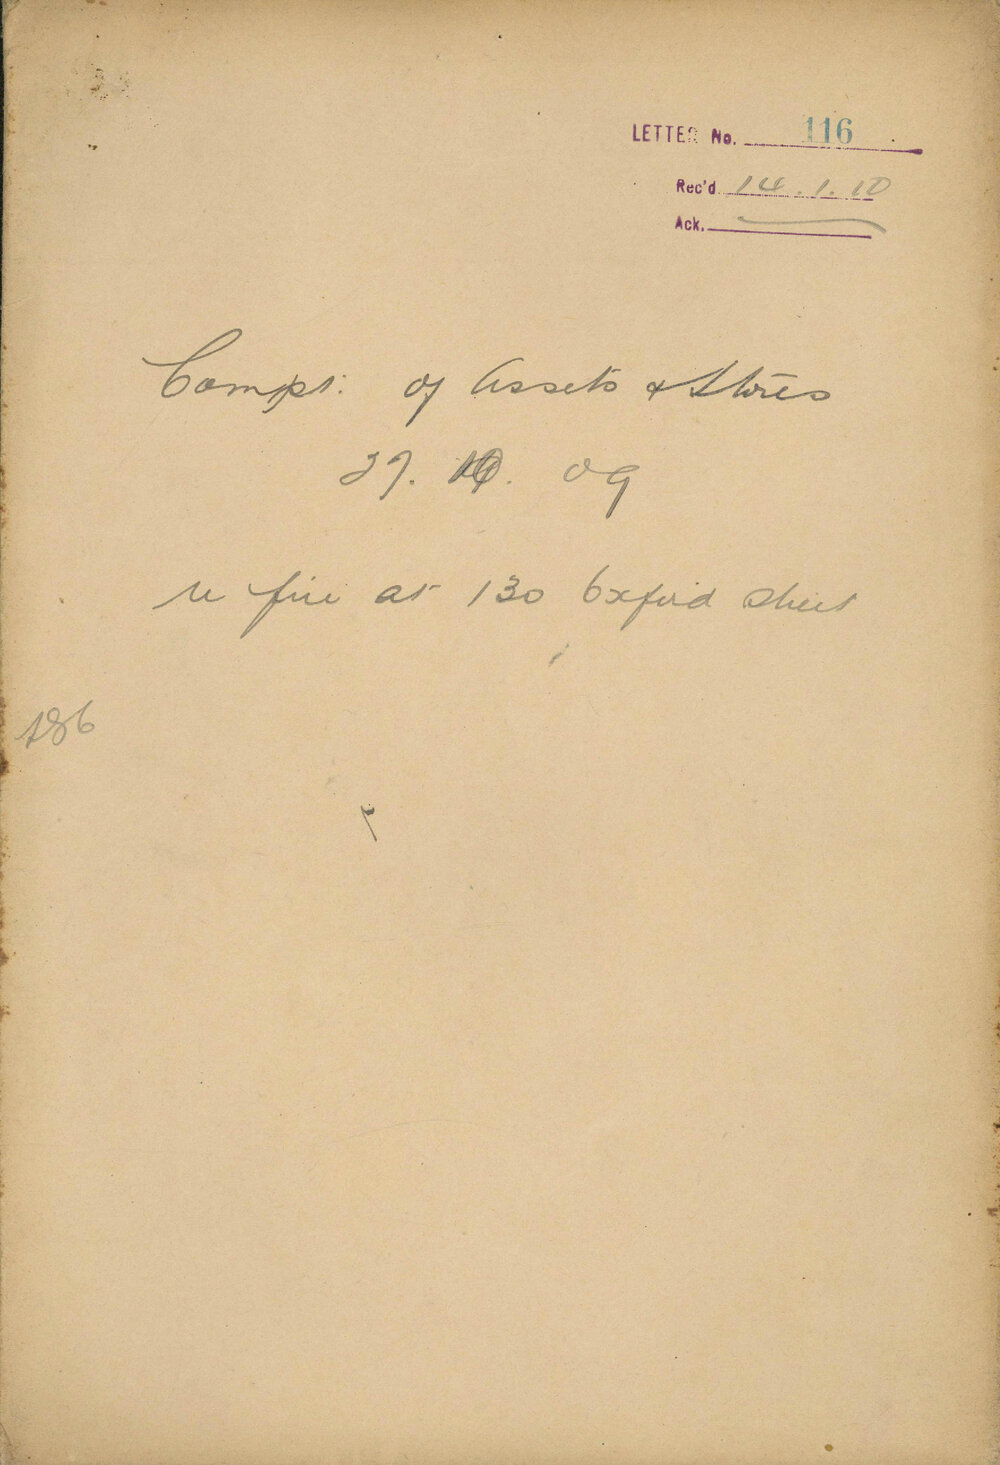 LETTER No. 116
Rec'd 14.1.10
Ack.
Compt. of Assets & Stores
09
re fire at 130 Oxford Street